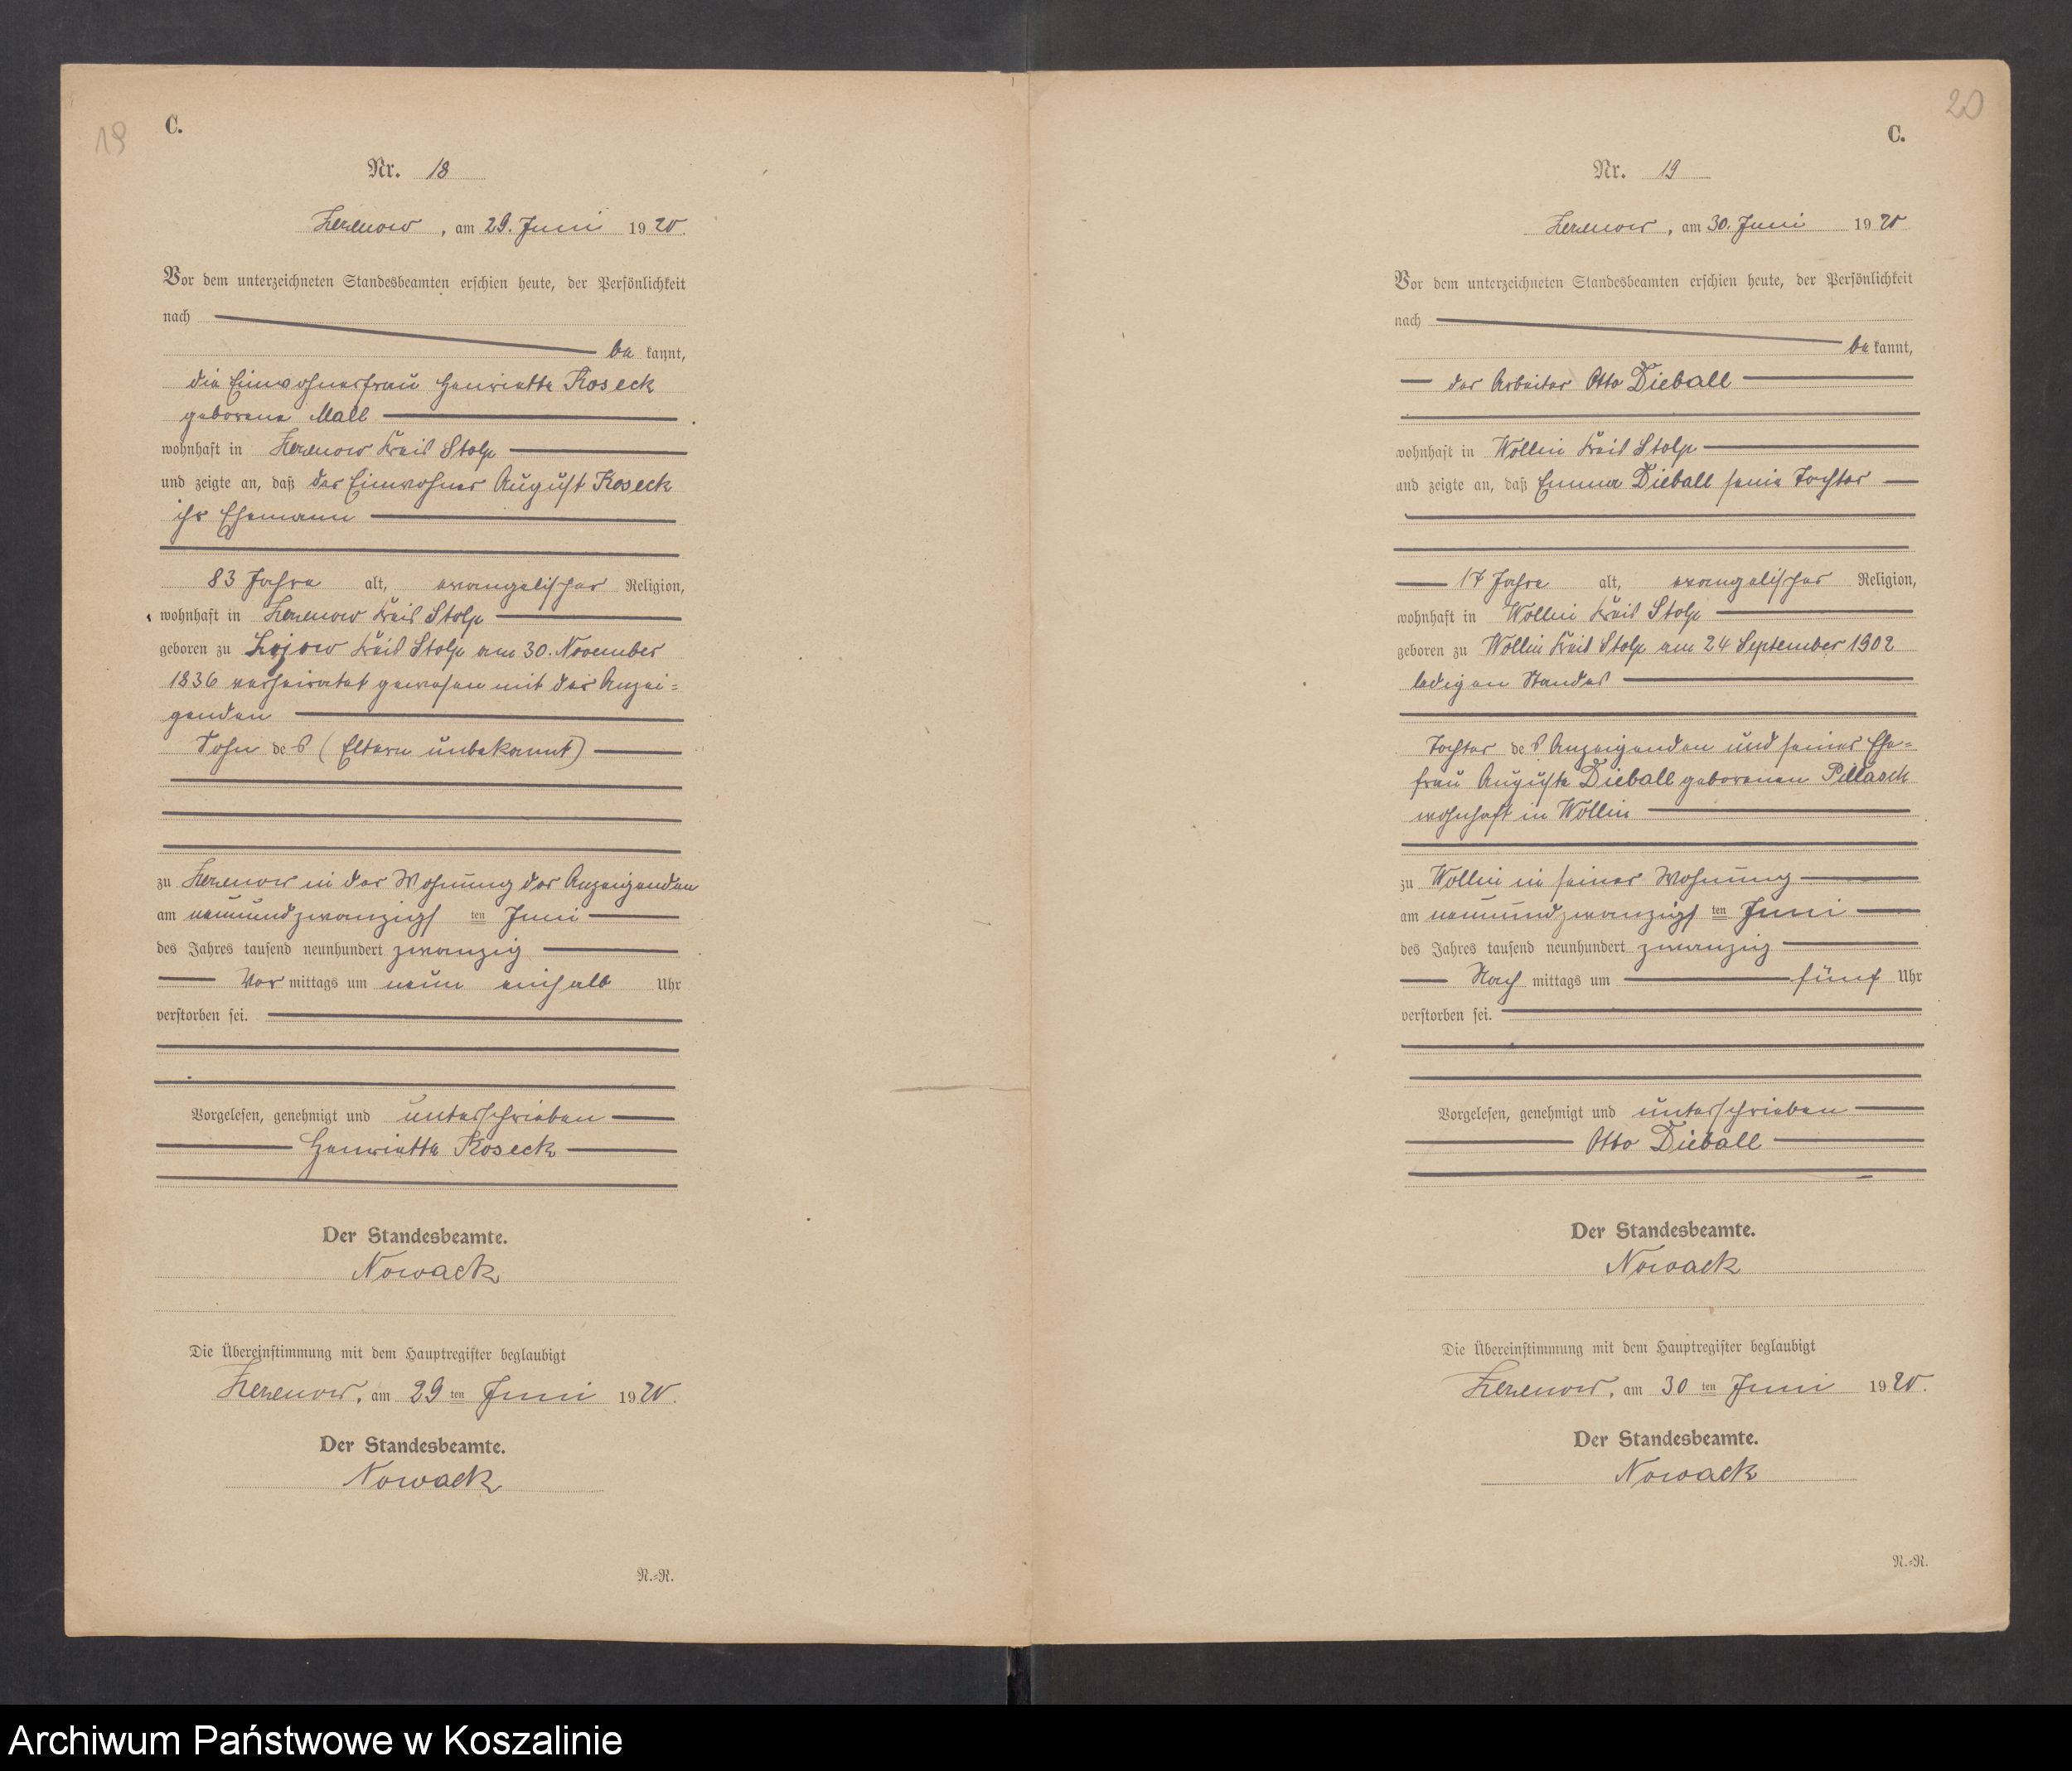 19
C.
Nr. 18
Zezenow, am 29. Juni 1920.
Vor dem unterzeichneten Standesbeamten erschien heute, der Persönlichkeit
nach
be kannt,
die Einwohnerfrau Henriette Koseck
geborene Mall
wohnhaft in Zezenow Kreis Stolp
und zeigte an, daß der Einwohner August Koseck
ihr Ehemann
83 Jahre alt, evangelischer Religion,
wohnhaft in Zezenow Kreis Stolp
geboren zu Lojow Kreis Stolp am 30. November
1836 verheiratet gewesen mit der Anzei=
genden
Sohn des (Eltern unbekannt)
zu Zezenow in der Wohnung der Anzeigenden
am neunundzwanzigsten Juni
des Jahres tausend neunhundert zwanzig
Vor mittags um neun einhalb Uhr
verstorben sei.
Vorgelesen, genehmigt und unterschrieben
Henriette Koseck
Der Standesbeamte.
Nowack
Die Übereinstimmung mit dem Hauptregister beglaubigt
Zezenow, am 29 ten Juni 1920.
Der Standesbeamte.
Nowack
N.=N.
20
C.
Nr. 19
Zezenow, am 30. Juni 1920
Vor dem unterzeichneten Standesbeamten erschien heute, der Persönlichkeit
nach
be kannt,
der Arbeiter Otto Dieball
wohnhaft in Wollin Kreis Stolp
und zeigte an, daß Emma Dieball seine Tochter
17 Jahre alt, evangelischer Religion,
wohnhaft in Wollin Kreis Stolp
geboren zu Wollin Kreis Stolp am 24 September 1902
ledigen Standes
Tochter des Anzeigenden und seiner Ehe=
frau Auguste Dieball geborenen Pillasch
wohnhaft in Wollin
zu Wollin in seiner Wohnung
am neunundzwanzigsten Juni
des Jahres tausend neunhundert zwanzig
Nach mittags um fünf Uhr
verstorben sei.
Vorgelesen, genehmigt und unterschrieben
Otto Dieball
Der Standesbeamte.
Nowack
Die Übereinstimmung mit dem Hauptregister beglaubigt
Zezenow, am 30 ten Juni 1920.
Der Standesbeamte.
Nowack
N.=N.
Archiwum Państwowe w Koszalinie